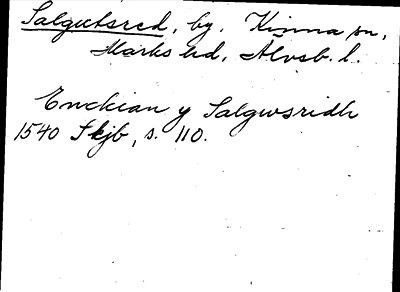 Salgutsred, by. Kinna sn,
Marks hd, Älvsb. l.
Enckian y Salgwsridh
1540 Skjb, s. 110.